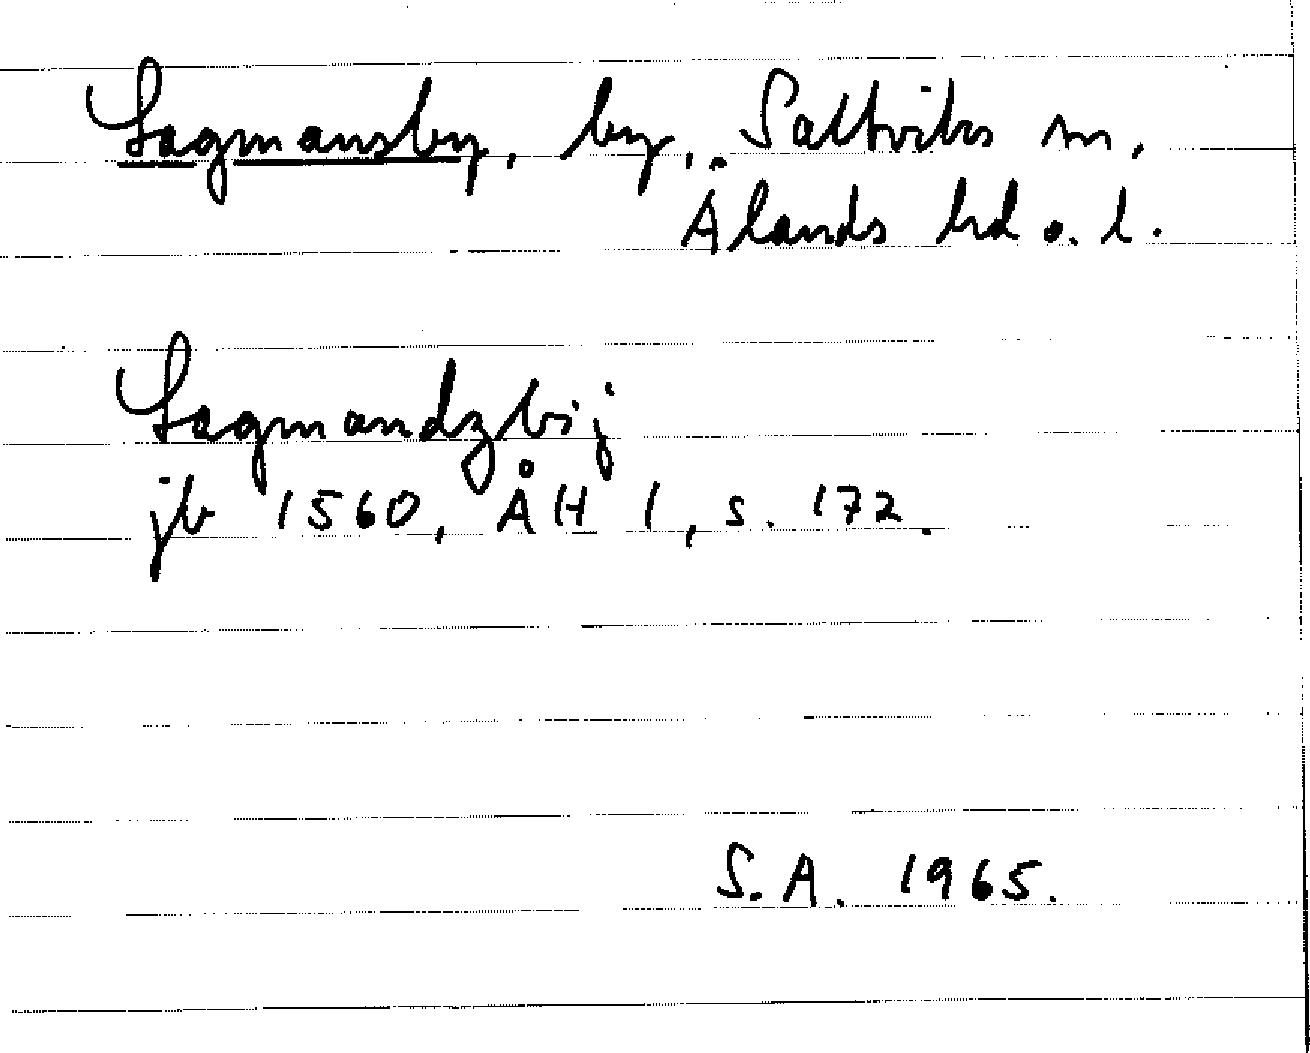 Lagmansby, by, Saltviks sn,
Ålands hd o. l.
Lagmandzbij
jb 1560, ÅH 1, s. 172.
S.A. 1965.